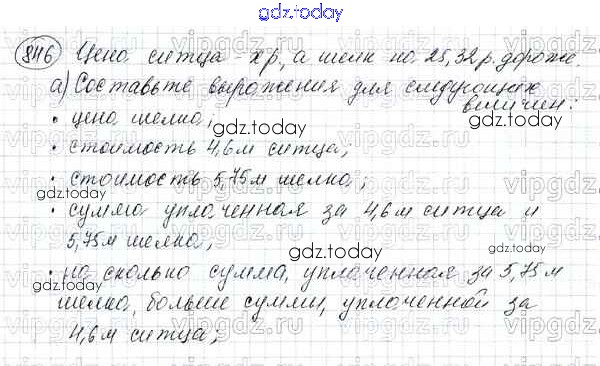 gdz.today
846 Цена ситца - х р., а шелк на 25,32 р. дороже.
а) Составьте выражения для следующих
величин:
• цена шелка;
gdz.today
• стоимость 4,6 м ситца;
• стоимость 5,75 м шелка;
gdz.today
• сумма уплаченная за 4,6 м ситца и
5,75 м шелка;
gdz.today
• на сколько сумма, уплаченная за 5,75 м
gdz.today
шелка, больше суммы, уплаченной за
4,6 м ситца;
vipgdz.ru